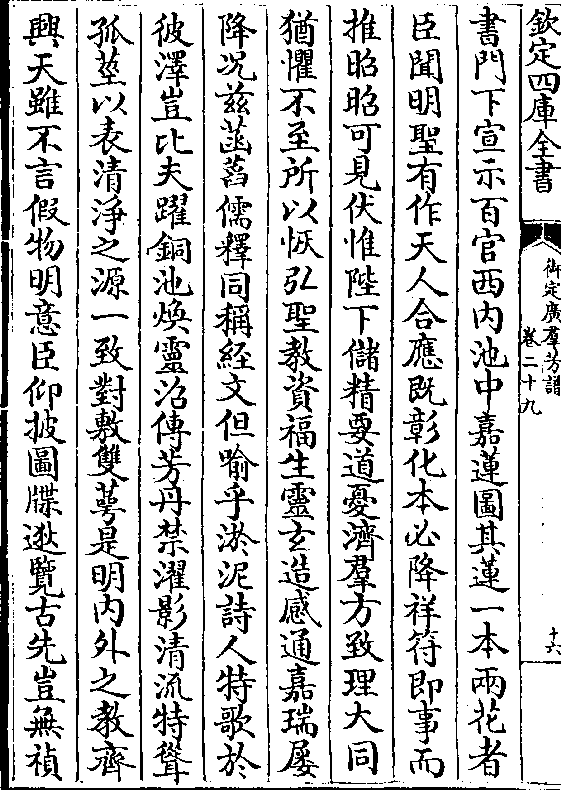 欽定四庫全書
御定廣羣芳譜
卷二十九
十六
書門下宣示百官西内池中嘉蓮圖其蓮一本兩花者
臣聞明聖有作天人合應既彰化本必降祥符即事而
推昭昭可見伏惟陛下儲精要道憂濟羣方致理大同
猶懼不至所以恢弘聖教資福生靈玄造感通嘉瑞屢
降况兹菡萏儒釋同稱經文但喻乎淤泥詩人特歌於
彼澤豈比夫躍銅池煥靈沼傳芳丹禁濯影清流特聳
孤莖以表清淨之源一致對敷雙萼是明内外之教齊
興天雖不言假物明意臣仰披圖牒逖覽古先豈無禎